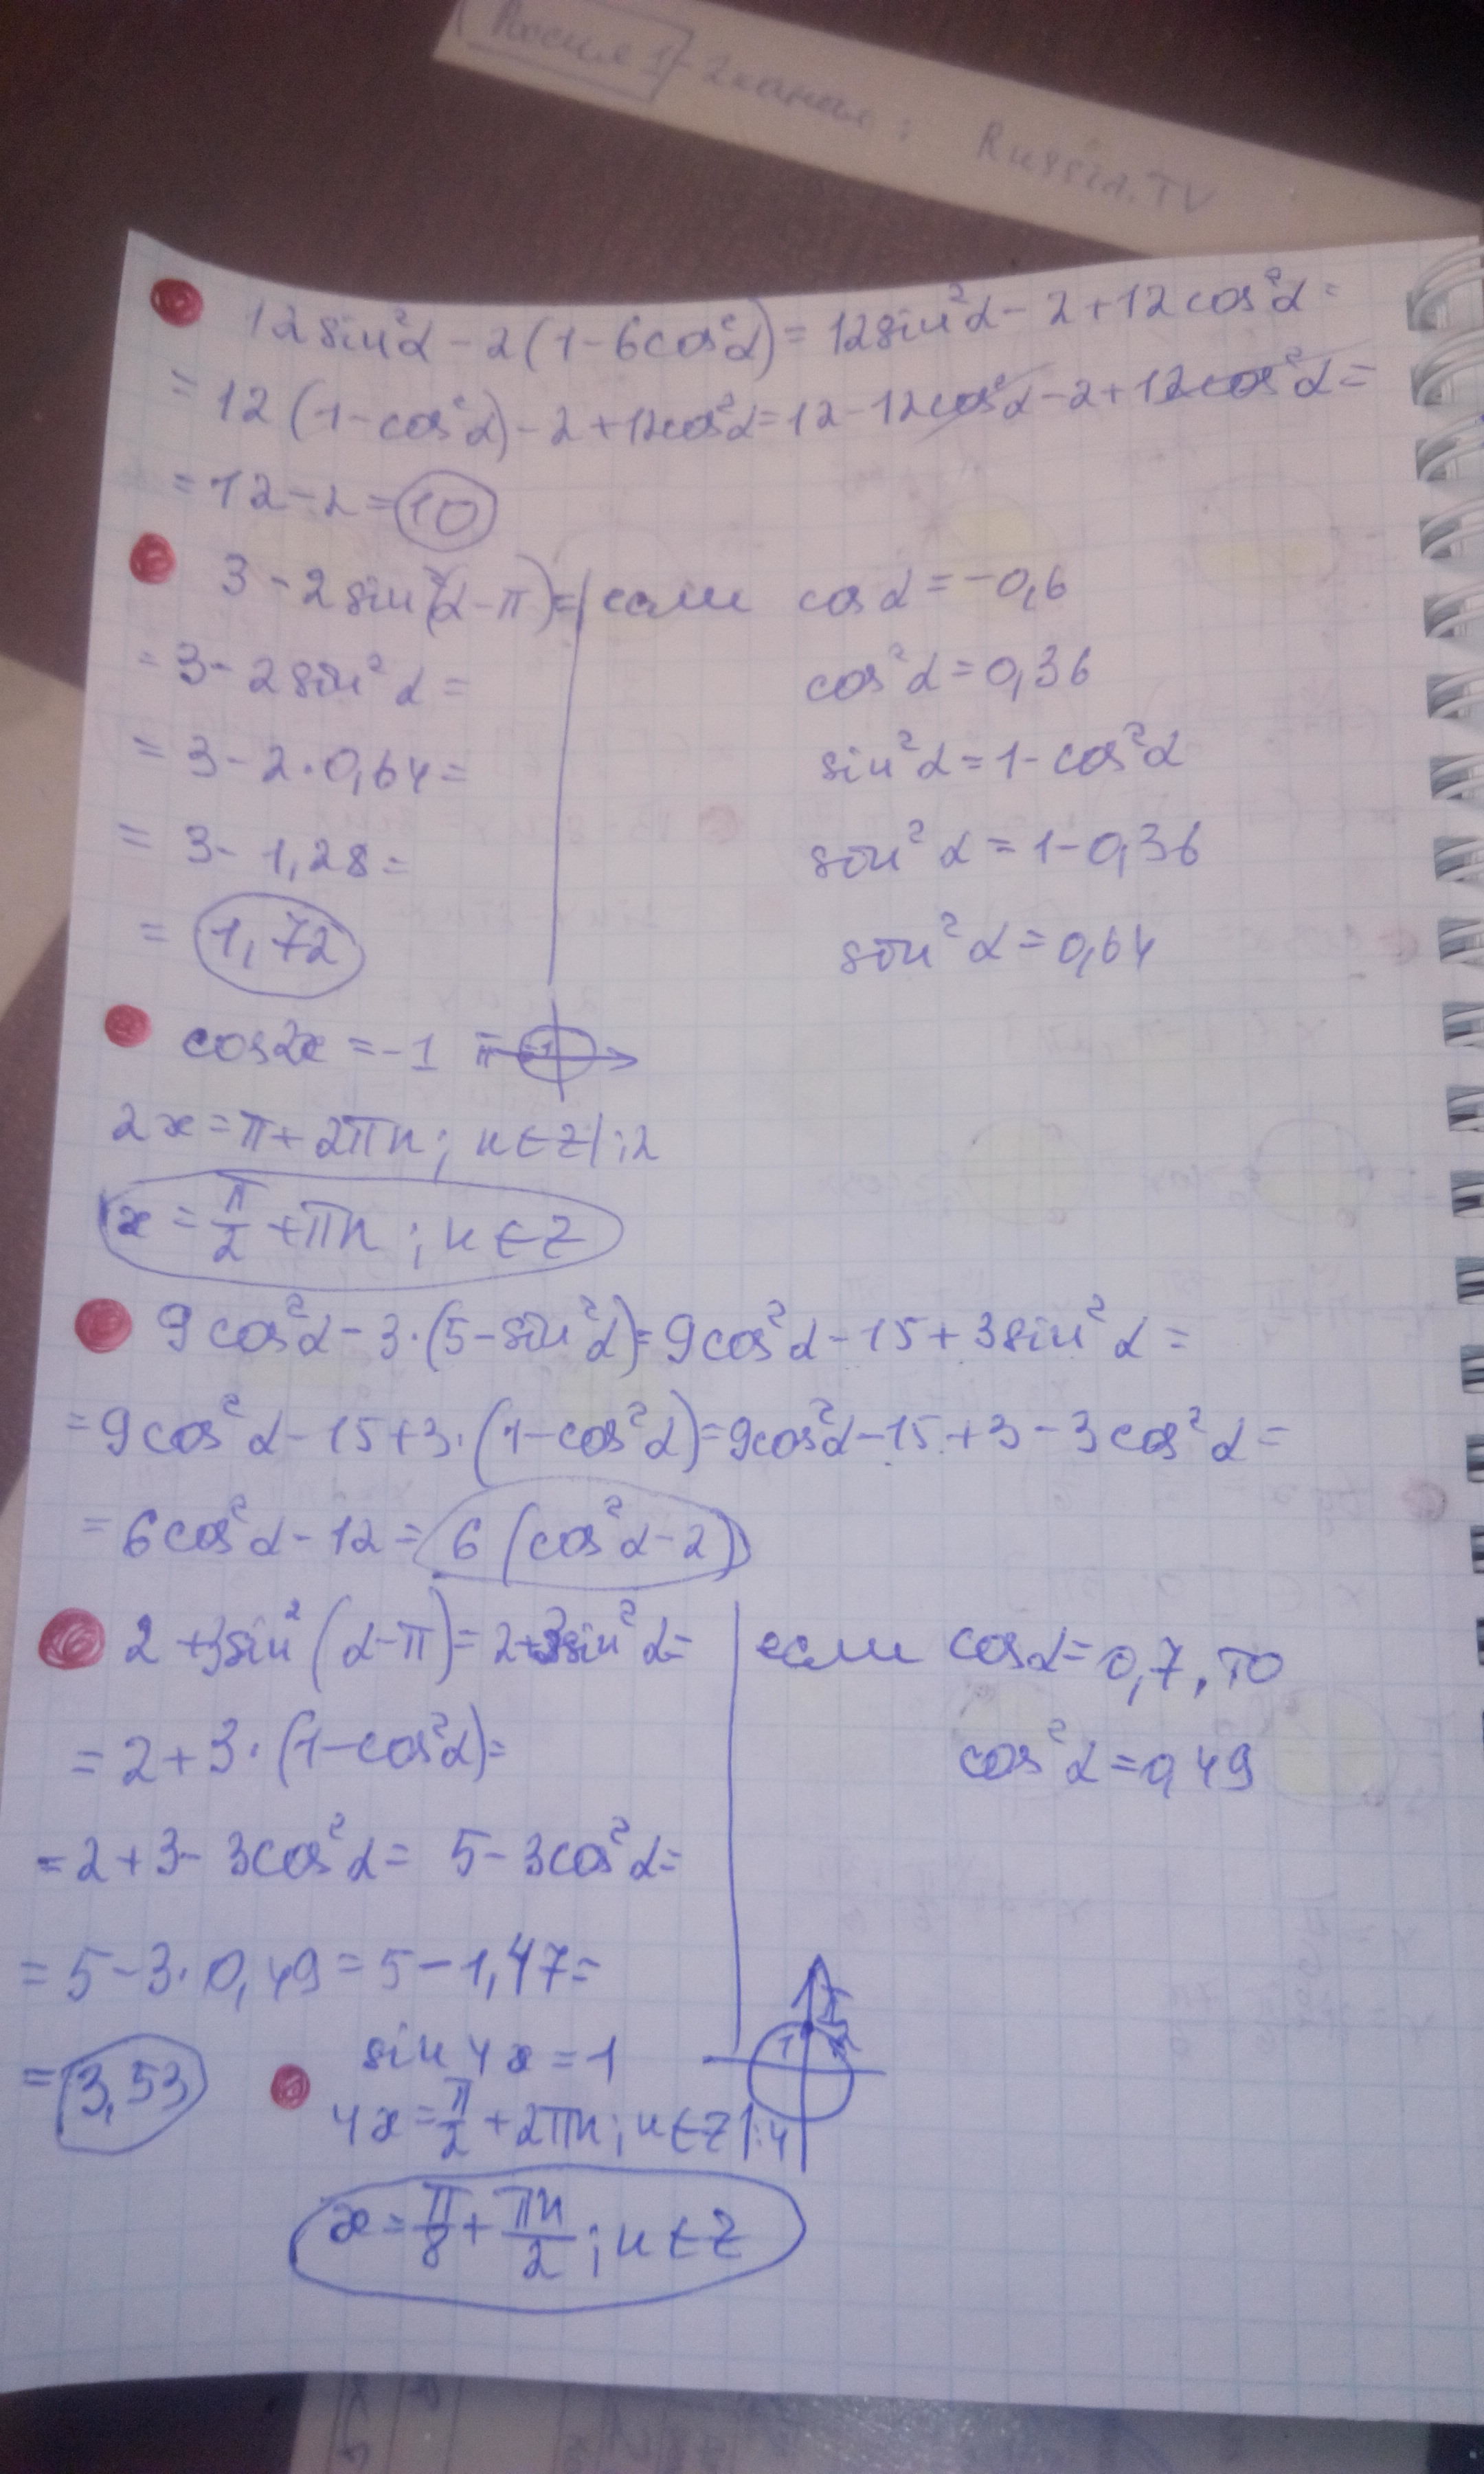 Россия 1 - 2 канал: Russia.TV
12sin²α - 2(1-6cos²α) = 12sin²α - 2 + 12cos²α =
= 12(1-cos²α) - 2 + 12cos²α = 12 - 12cos²α - 2 + 12cos²α =
= 12 - 2 = 10
3 - 2sin²(α-π) = | если cosα = -0,6
= 3 - 2sin²α =
cos²α = 0,36
= 3 - 2·0,64 =
sin²α = 1 - cos²α
= 3 - 1,28 =
sin²α = 1 - 0,36
= 1,72
sin²α = 0,64
cos2x = -1 π -1
2x = π + 2πn; n∈Z |:2
x = π/2 + πn; n∈Z
9cos²α - 3·(5-sin²α) = 9cos²α - 15 + 3sin²α =
= 9cos²α - 15 + 3·(1-cos²α) = 9cos²α - 15 + 3 - 3cos²α =
= 6cos²α - 12 = 6(cos²α - 2)
2 + 3sin²(α-π) = 2 + 3sin²α = | если cosα = 0,7, то
= 2 + 3·(1-cos²α) =
cos²α = 0,49
= 2 + 3 - 3cos²α = 5 - 3cos²α =
= 5 - 3·0,49 = 5 - 1,47 =
= 3,53
sin4x = 1
1 π/2
4x = π/2 + 2πn; n∈Z |:4
x = π/8 + πn/2; n∈Z